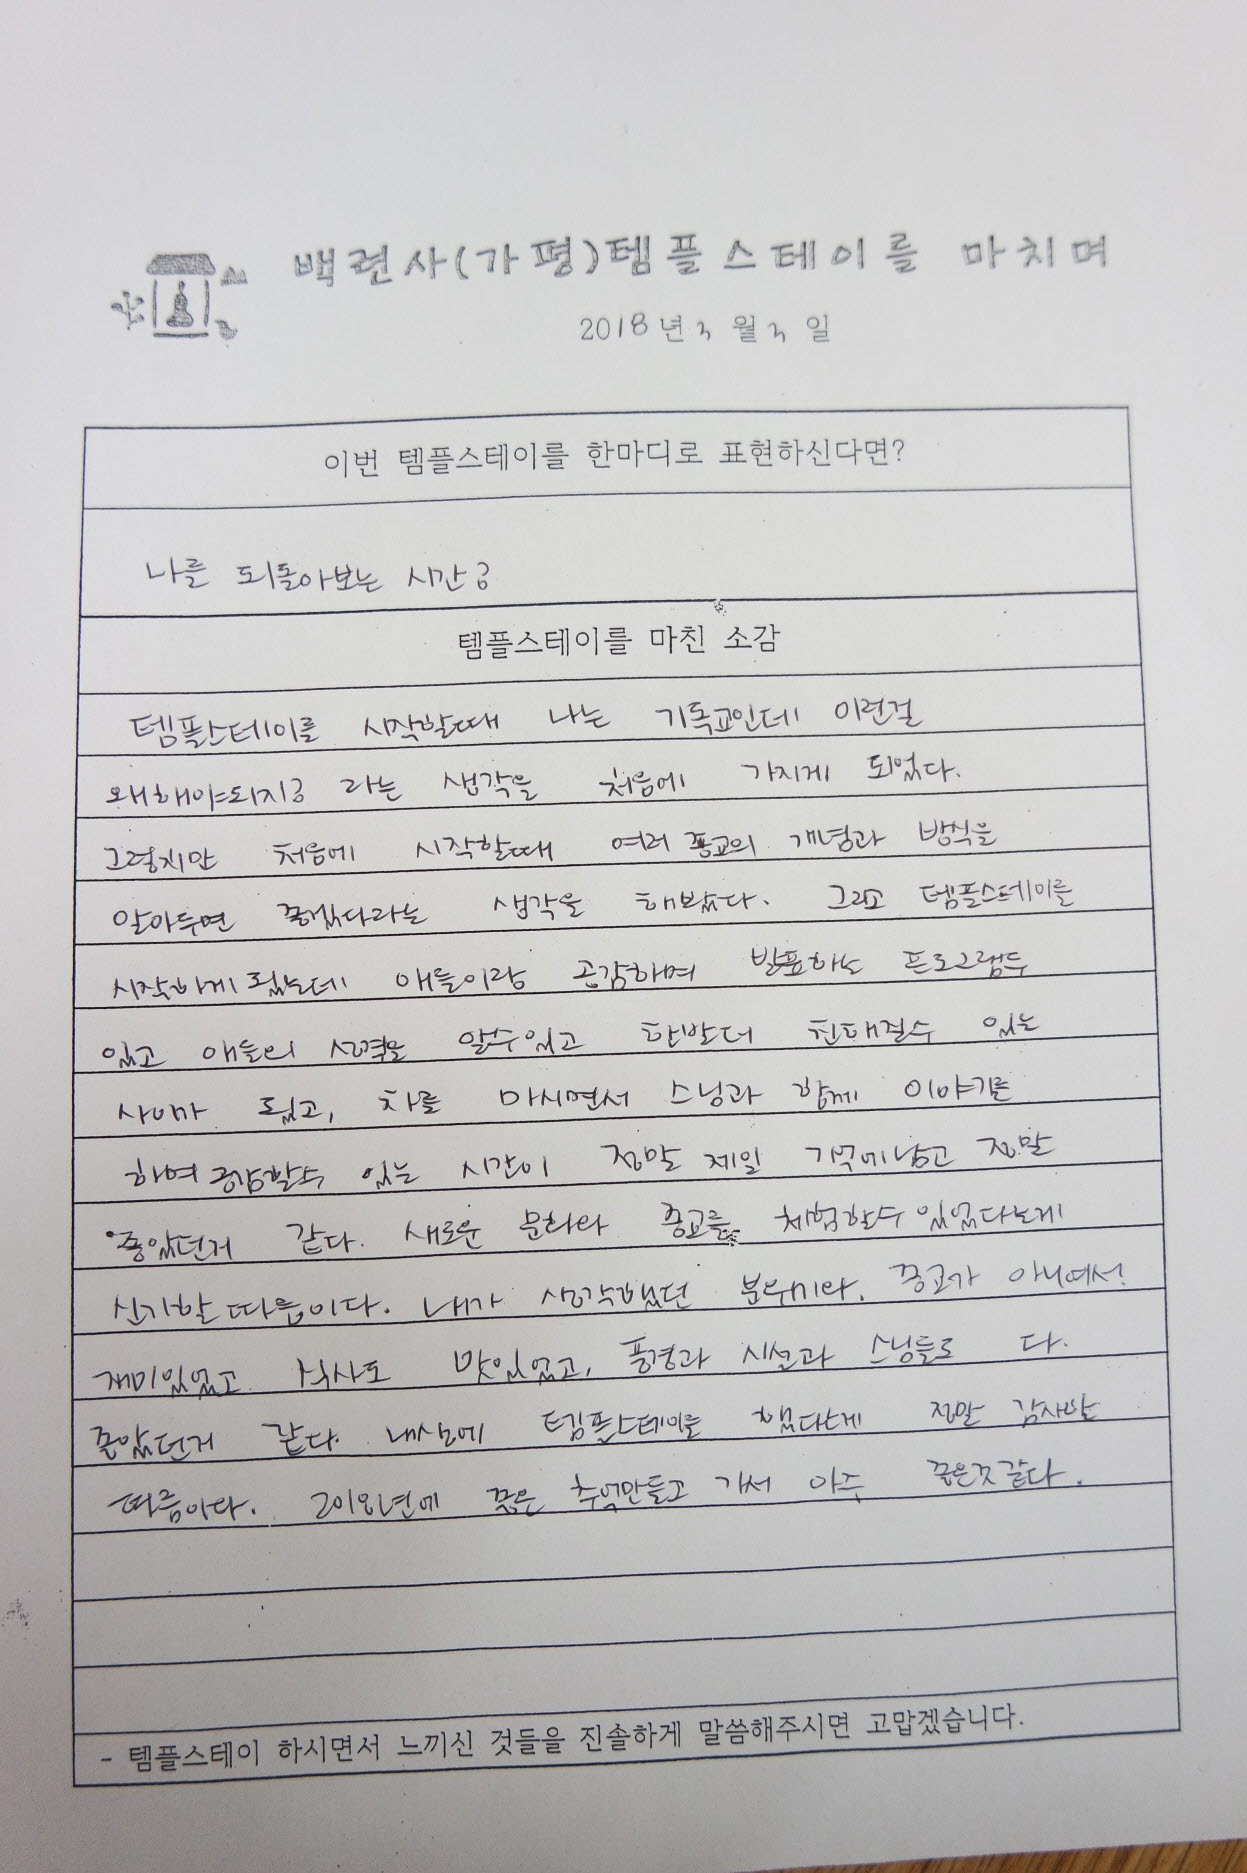 백련사(가평)템플스테이를 마치며
2018년 3월 3일
이번 템플스테이를 한마디로 표현하신다면?
나를 되돌아보는 시간?
템플스테이를 마친 소감
템플스테이를 시작할때 나는 기독교인데 이런걸
왜해야되지? 라는 생각을 처음에 가지게 되었다.
그렇지만 처음에 시작할때 여러 종교의 개념과 방식을
알아두면 좋겠다라는 생각을 해봤다. 그리고 템플스테이를
시작하게 됬는데 애들이랑 공감하며 발표하는 프로그램두
있고 애들의 성격을 알수있고 한발더 친해질수 있는
사이가 됬고, 차를 마시면서 스님과 함께 이야기를
하며 공감할수 있는 시간이 정말 제일 기억에남고 정말
좋았던거 같다. 새로운 문화와 종교를 체험할수 있었다는게
신기할 따름이다. 내가 생각했던 분위기와, 종교가 아니여서
재미있었고 식사도 맛있었고, 풍경과 시설과 스님들도 다.
좋았던거 같다. 템플스테이를 했다는게 정말 감사할
따름이다. 2018년에 좋은 추억만들고 가서 아주 좋은것같다.
- 템플스테이 하시면서 느끼신 것들을 진솔하게 말씀해주시면 고맙겠습니다.